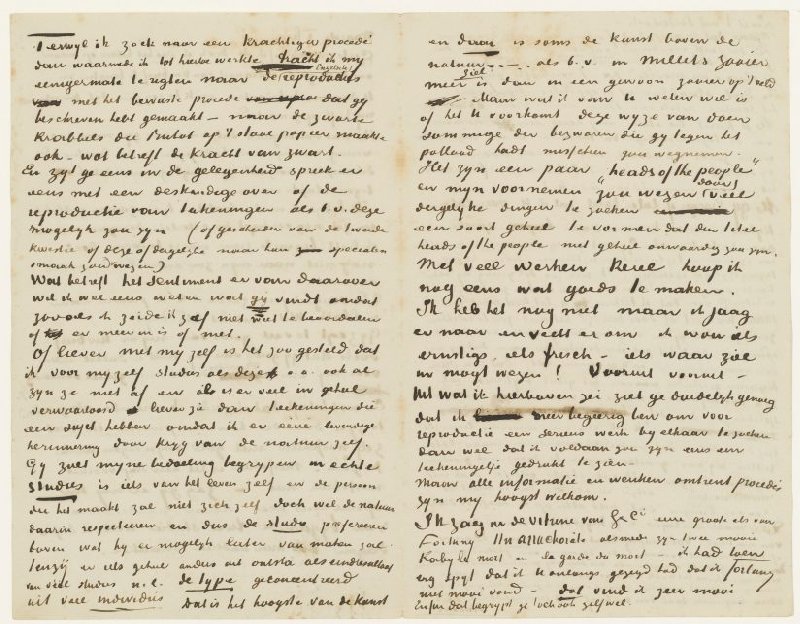 Terwyl ik zoek naar een krachtiger procédé
dan waarmede ik tot hiertoe werkte tracht ik my
eenigermate te reglen naar de Engelsche reproducties
met het bewuste procede dat gy
beschreven hebt gemaakt – naar de zwarte
krabbels die Buhot op 't staal papier maakte
ook – wat betreft de kracht van zwart.
En zyt ge eens in de gelegenheid spreek er
eens met een deskundige over of de
reproductie van teekeningen als b.v. deze
mogelyk zou zyn (afgescheiden van de tweede
kwestie of deze of dergelyke naar hun specialen
smaak zou wezen)
Wat betreft het sentiment er van daarover
wil ik wel eens weten wat gy vindt omdat
zooals ik zeide ik zelf niet weet te beoordeelen
of er meer in is of niet.
Of liever met my zelf is het zoo gesteld dat
ik voor my zelf studies als deze o.a. ook al
zyn ze niet af en al is er veel in geheel
verwaarloosd liever zie dan teekeningen die
een sujet hebben omdat ik er eene levendige
herinnering door kryg van de natuur zelf.
Gy zult myne bedoeling begrypen in echte
studies is iets van het leven zelf en de persoon
die het maakt zal niet zich zelf doch wel de natuur
daarin respecteeren en dus de studie prefereeren
boven wat hy er mogelyk later van maken zal
tenzy er iets geheel anders uit ontsta als eindresultaat
van vele studies n.l. de type geconcentreerd
uit veel individus dat is het hoogste van de kunst
en daar is soms de kunst boven de
natuur – – – als b.v. in Millets zaaier
meer ziel is dan in een gewoon zaaier op 't veld
Maar wat ik van U weten wil is
of het U voorkomt deze wyze van doen
sommige der bezwaren die gy tegen het
potlood hadt misschien zou wegnemen.
Het zyn een paar "heads of the people"
en myn voornemen zou wezen door veel
dergelyke dingen te zoeken
een soort geheel te vormen dat den titel
heads of the people niet geheel onwaardig zou zyn.
Met veel werken kerel hoop ik
nog eens wat goeds te maken.
Ik heb het nog niet maar ik jaag
er naar en vecht er om ik wou iets
ernstigs, iets frisch – iets waar ziel
in mogt wezen! Vooruit vooruit –
Uit wat ik hierboven zei ziet ge duidelyk genoeg
dat ik meer begeerig ben om voor
reproductie een serieus werk by elkaar te zoeken
dan wel dat ik voldaan zou zyn eens een
teekeningetje gedrukt te zien –
Maar alle informatie en wenken omtrent procédés
zyn my hoogst welkom.
Ik zag in de vitrine van G&C eene groote ets van
Fortuny Un anachorète alsmede zyn twee mooie
Kabyle mort en la garde du mort – ik had toen
erg spyt dat ik U onlangs gezegd had dat ik Fortuny
niet mooi vond – dat vind ik zeer mooi
Enfin dat begrypt ge toch ook zelf wel.